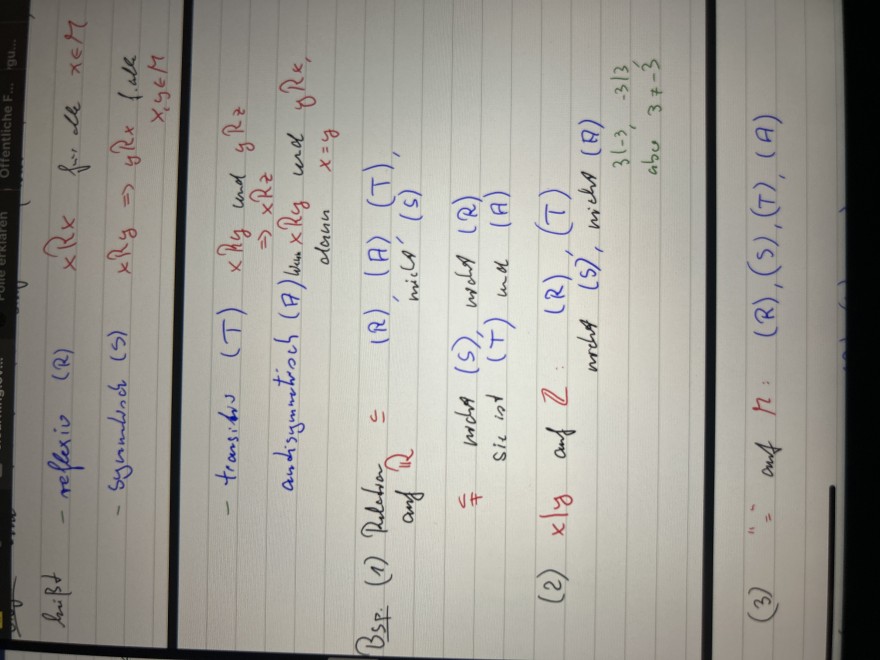 heißt - reflexiv (R) xRx für alle x∈M
- symmetrisch (S) xRy => yRx f. alle
x,y∈M
- transitiv (T) xRy und yRz
=> xRz
antisymmetrisch (A) wenn xRy und yRx,
dann x=y
Bsp. (1) Relation ≤ (R), (A), (T),
auf ℝ nicht (S)
≨ nicht (S), nicht (R)
sie ist (T) und (A)
(2) x|y auf ℤ: (R), (T)
nicht (S), nicht (A)
3|-3, -3|3
aber 3≠-3
(3) "=" auf M: (R), (S), (T), (A)
Öffentliche F...
Folie erklären